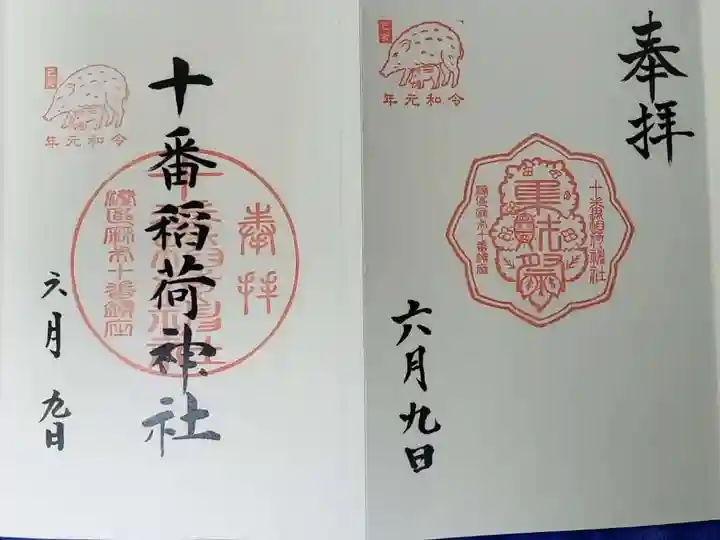 奉拝
己亥
令和元年
十番稲荷神社
港区麻布十番鎮座
六月九日
己亥
令和元年
十番稲荷神社
奉拝
港区麻布十番鎮座
六月九日